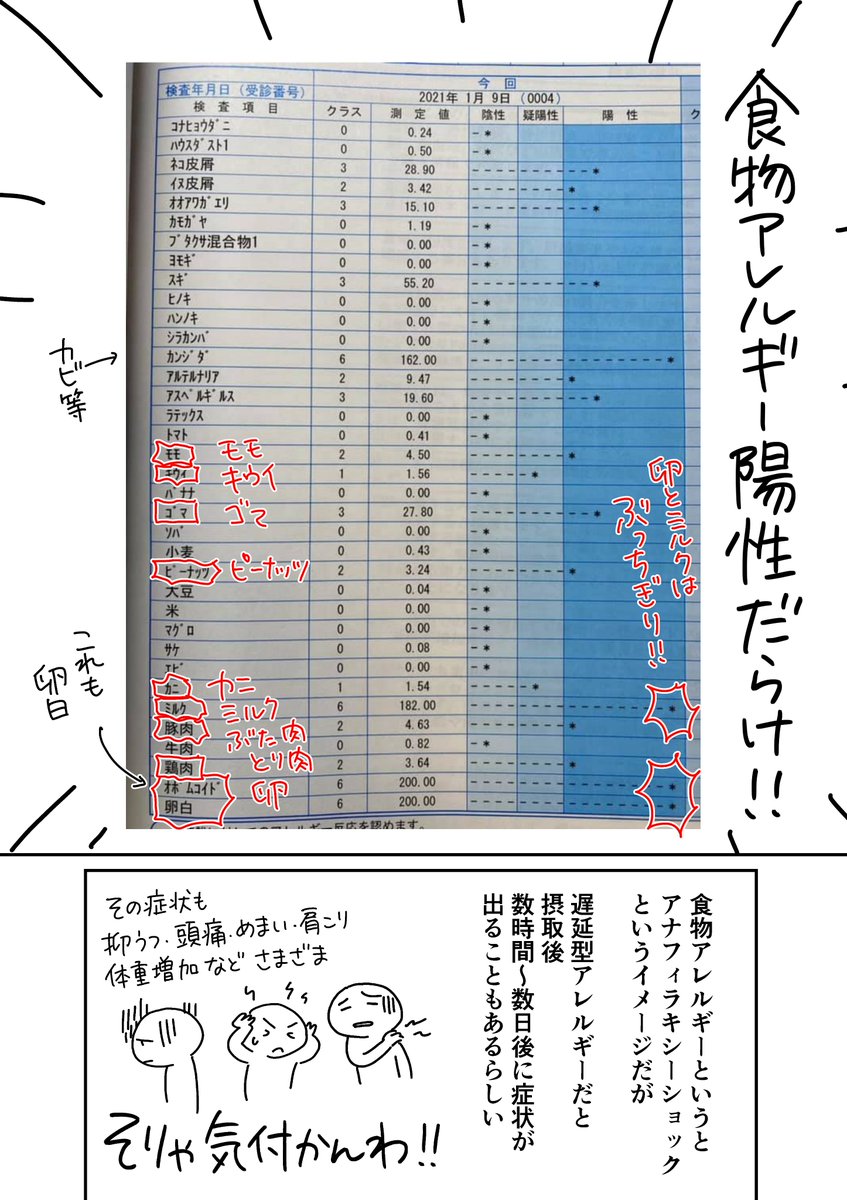 食物アレルギー陽性だらけ!!
今 回
検査年月日(受診番号) 2021年 1月 9日 (0004)
検 査 項 目 クラス 測 定 値 陰性 疑陽性 陽 性 ク
コナヒョウダニ 0 0.24 -*
ハウスダスト1 0 0.50 -*
ネコ皮屑 3 28.90 - - - - - - - - - - *
イヌ皮屑 2 3.42 - - - - - - - - *
オオアワガエリ 3 15.10 - - - - - - - - - - *
カモガヤ 0 1.19 -*
ブタクサ混合物1 0 0.00 -*
ヨモギ 0 0.00 -*
スギ 3 55.20 - - - - - - - - - - *
ヒノキ 0 0.00 -*
ハンノキ 0 0.00 -*
シラカンバ 0 0.00 -*
カンジダ 6 162.00 - - - - - - - - - - - - - - - - *
アルテルナリア 2 9.47 - - - - - - - - *
アスペルギルス 3 19.60 - - - - - - - - - - *
ラテックス 0 0.00 -*
トマト 0 0.41 -*
モモ 2 4.50 - - - - - - - - *
キウイ 1 1.56 - - - - - *
バナナ 0 0.00 -*
ゴマ 3 27.80 - - - - - - - - - - *
ソバ 0 0.00 -*
小麦 0 0.43 -*
ピーナッツ 2 3.24 - - - - - - - - *
大豆 0 0.04 -*
米 0 0.00 -*
マグロ 0 0.00 -*
サケ 0 0.08 -*
エビ 0 0.00 -*
カニ 1 1.54 - - - - - *
ミルク 6 182.00 - - - - - - - - - - - - - - - - *
豚肉 2 4.63 - - - - - - - - *
牛肉 0 0.82 -*
鶏肉 2 3.64 - - - - - - - - *
オボムコイド 6 200.00 - - - - - - - - - - - - - - - - *
卵白 6 200.00 - - - - - - - - - - - - - - - - *
アレルギー反応を認めます。
カビ等
モモ
キウイ
ゴマ
ピーナッツ
カニ
ミルク
ぶた肉
とり肉
卵
卵とミルクは
ぶっちぎり!!
これも
卵白
食物アレルギーというと
アナフィラキシーショック
というイメージだが
遅延型アレルギーだと
摂取後
数時間~数日後に症状が
出ることもあるらしい
その症状も
抑うつ・頭痛・めまい・肩こり
体重増加など さまざま
そりゃ気付かんわ!!